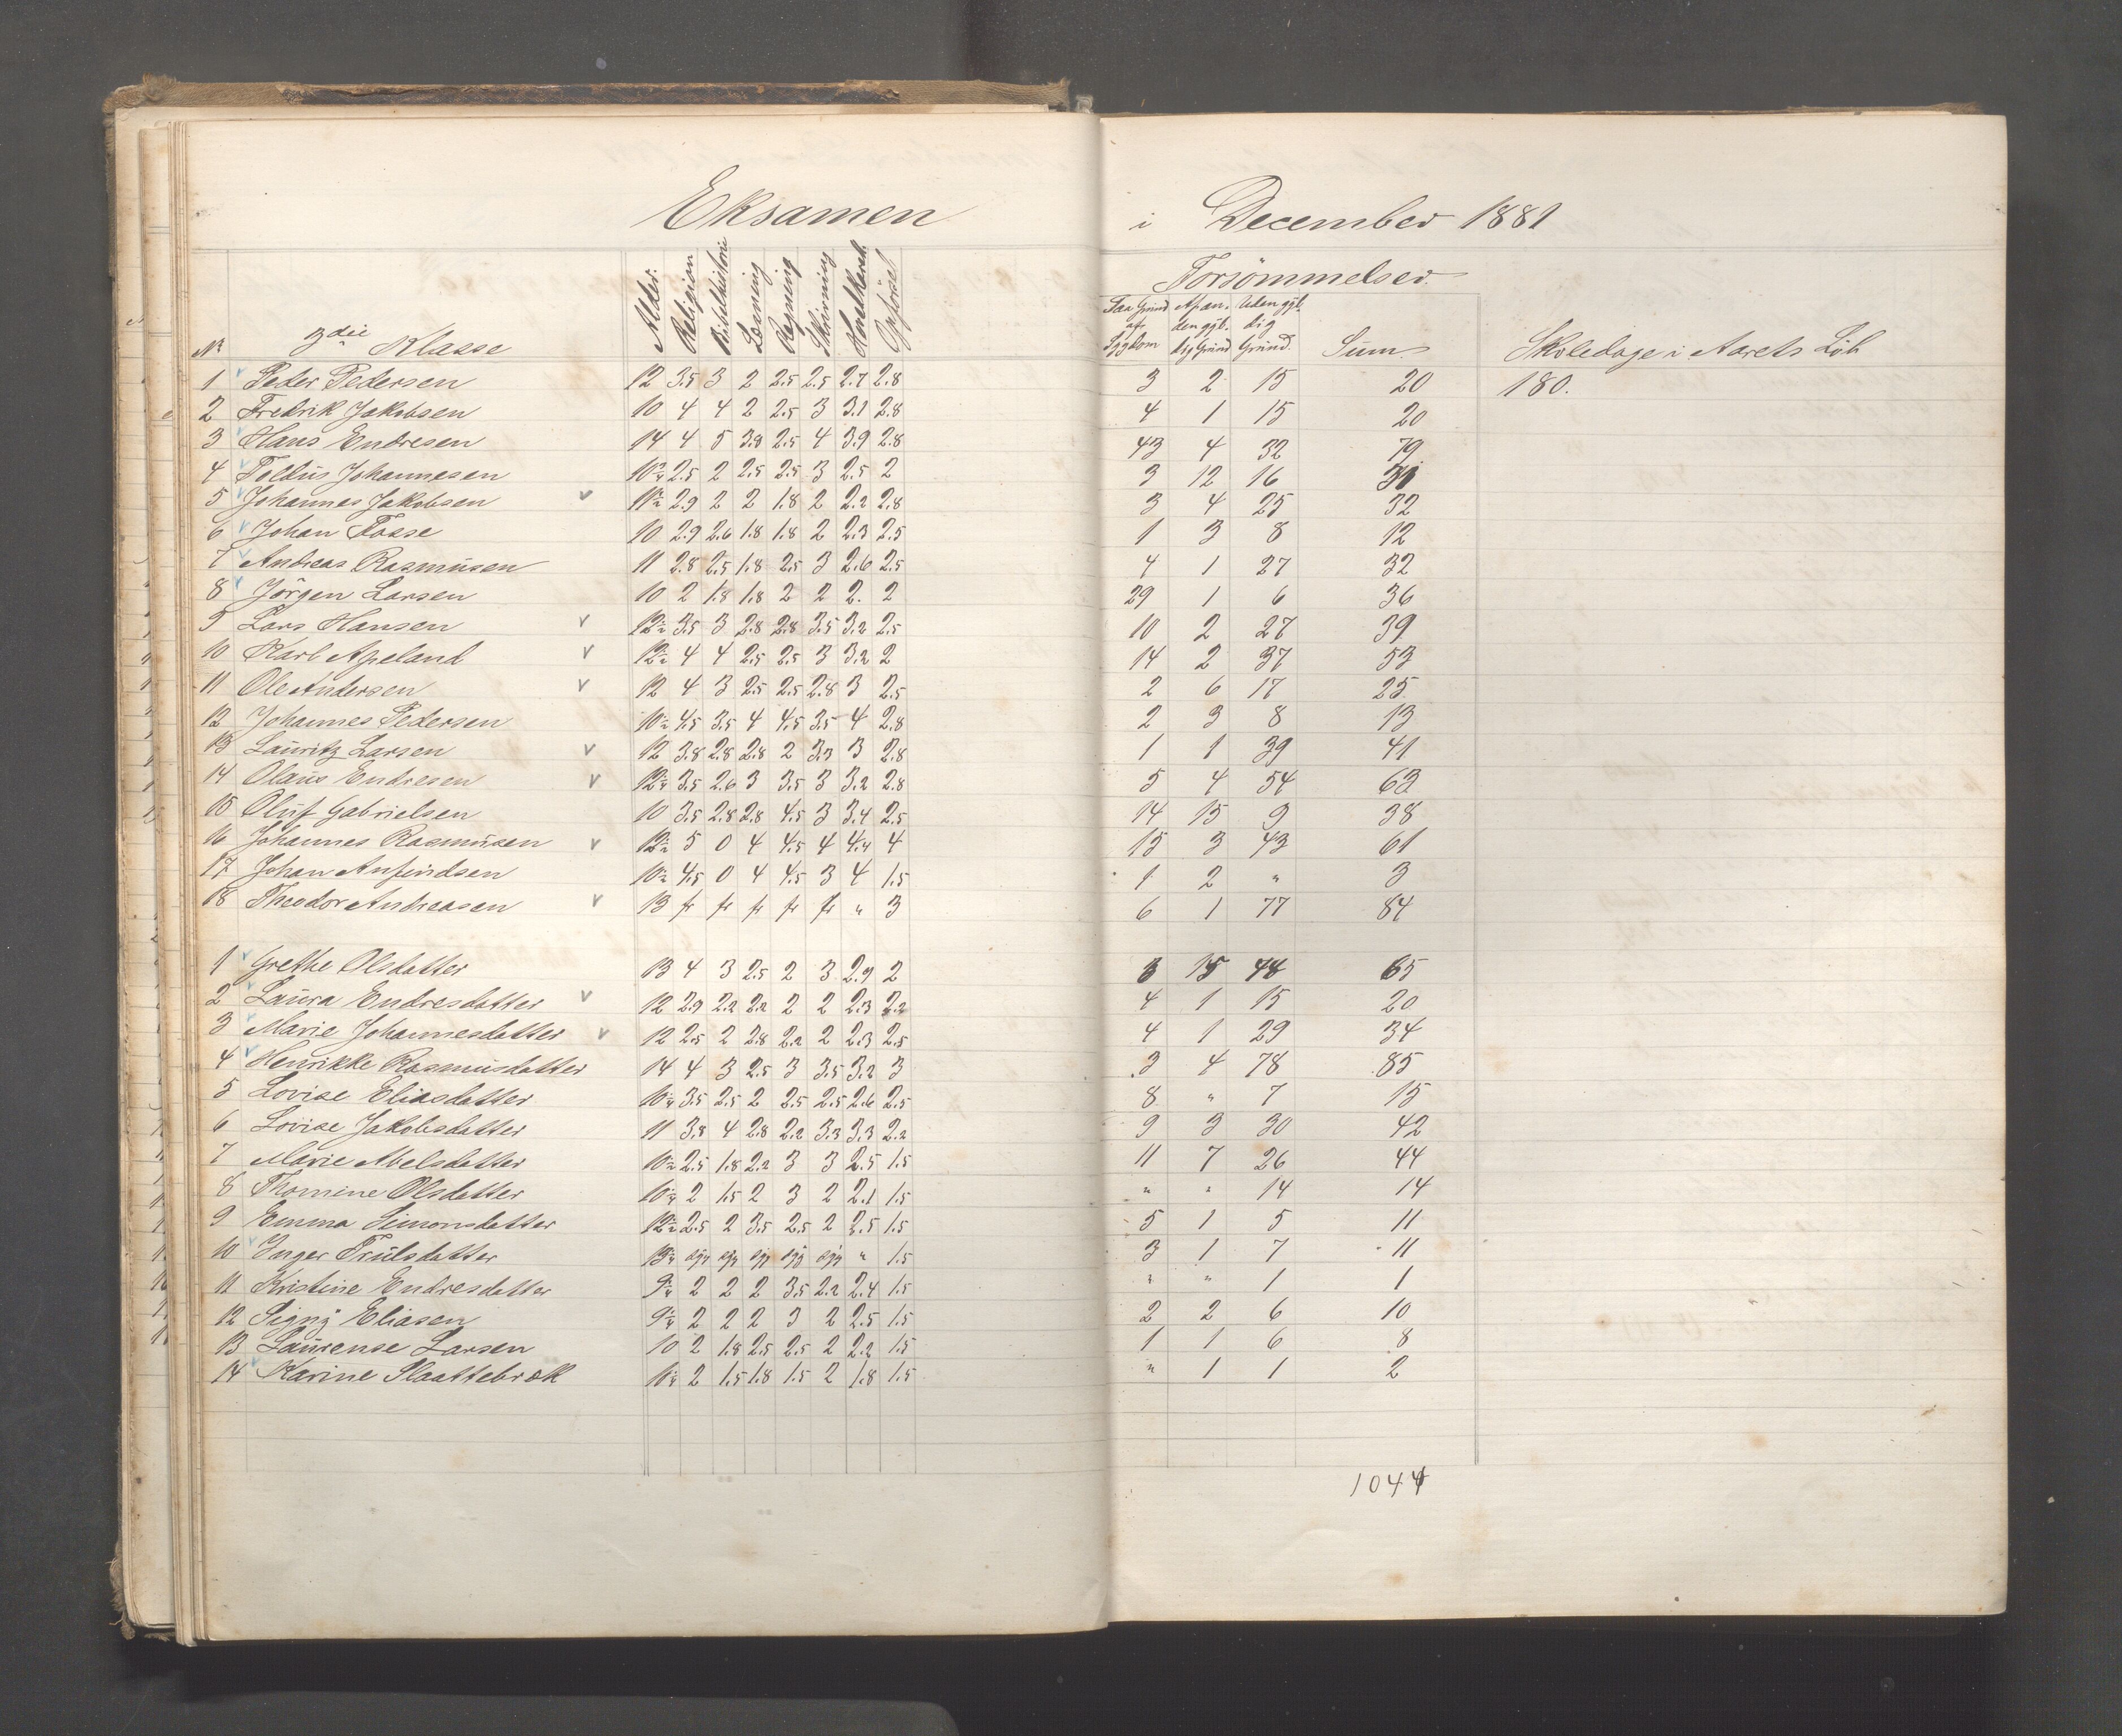 Eksamen i December 1881
Forsömmelser.
Nr 3die Klasse Alder. Religion Bibelhistorie Læsning Regning Skrivning Opförsel
Sygdom Af an- den gyl- dig Grund Uden gyl- dig Grund. Sum. Skoledage i Aarets Löb
1 Peder Pedersen 12 3.5 3 2 2.5 2.5 2.7 2.8 3 2 15 20 180.
2 Fredrik Jakobsen 10 4 4 2 2.5 3 3.1 2.8 4 1 15 20
3 Hans Endresen 14 4 5 3.8 2.5 4 3.9 2.8 43 4 32 79
4 Johannesen 10 2.5 2 2.5 2.5 3 2.5 2 3 12 16 31
5 Johannes Jakobsen v 11 2.9 2 2 1.8 2 2.2 2.8 3 4 25 32
6 Johan Fosse 10 2.9 2.6 1.8 1.8 2 2.3 2.5 1 3 8 12
7 Andreas Rasmusen 11 2.8 2.5 1.8 2.5 3 2.6 2.5 4 1 27 32
8 Jörgen Larsen 10 2 1.8 1.8 2 2 2. 2 29 1 6 36
9 Lars Hansen v 12 3.5 3 2.8 2.8 3.5 3.2 2.5 10 2 27 39
10 Karl Apeland v 12 4 4 2.5 2.5 3 3.2 2 14 2 37 53
11 Ole Andersen v 12 4 3 2.5 2.5 2.8 3 2.5 2 6 17 25
12 Johannes Pedersen 10 4.5 3.5 4 4.5 3.5 4 2.8 2 3 8 13
13 Lauritz Larsen v 12 3.8 2.8 2.8 2 3.3 3 2.8 1 1 39 41
14 Olaus Endresen v 12 3.5 2.6 3 3.5 3 3.2 2.8 5 4 54 63
15 Oluf Gabrielsen 10 3.5 2.8 2.8 4.5 3 3.4 2.5 14 15 9 38
16 Johannes Rasmusen v 12 5 0 4 4.5 4 4.4 4 15 3 43 61
17 Johan Anfindsen 10 4.5 0 4 4.5 3 4 1.5 1 2 " 3
18 Theodor Andreasen v 13 fr fr fr fr fr " 3 6 1 77 84
1 Grethe Olsdatter 13 4 3 2.5 2 3 2.9 2 3 15 48 65
2 Laura Endresdatter v 12 2.9 2.2 2.2 2 2 2.3 2.2 4 1 15 20
3 Marie Johannesdatter v 12 2.5 2 2.8 2.2 2 2.3 2.5 4 1 29 34
4 Henrikke Rasmusdatter 14 4 3 2.5 3 3.5 3.2 3 3 4 78 85
5 Lovise Eliasdatter 10 3.5 2.5 2 2.5 2.5 2.6 2.5 8 " 7 15
6 Lovise Jakobsdatter 11 3.8 4 2.8 2.2 3.3 3.3 2.2 9 3 30 42
7 Marie Abelsdatter 10 2.5 1.8 2.2 3 3 2.5 1.5 11 7 26 44
8 Thomine Olsdatter 10 2 1.5 2 3 2 2.1 1.5 " " 14 14
9 Emma Simonsdatter 12 2.5 2 3.5 2.5 2 2.5 1.5 5 1 5 11
10 Inger Trulsdatter 13 syg syg syg syg syg " 1.5 3 1 7 11
11 Kristine Endresdatter 9 2 2 2 3.5 2.2 2.4 1.5 " " 1 1
12 Signy Eliasen 9 2 2 2 3 2 2.5 1.5 2 2 6 10
13 Laurense Larsen 10 2 1.8 2.5 2.5 2 2.2 1.5 1 1 6 8
14 Karine Slaattebræk 10 2 1.5 1.8 1.5 2 1.8 1.5 " 1 1 2
1044